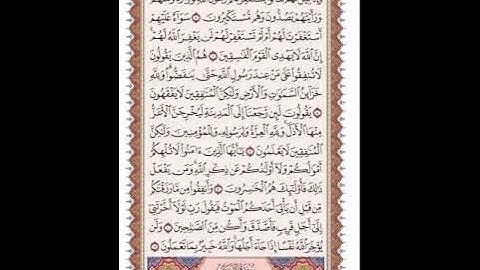 وَرَأَيْتَهُمْ يَصُدُّونَ وَهُم مُّسْتَكْبِرُونَ ۝ سَوَآءٌ عَلَيْهِمْ
أَسْتَغْفَرْتَ لَهُمْ أَمْ لَمْ تَسْتَغْفِرْ لَهُمْ لَن يَغْفِرَ ٱللَّهُ لَهُمْ
إِنَّ ٱللَّهَ لَا يَهْدِى ٱلْقَوْمَ ٱلْفَٰسِقِينَ ۝ هُمُ ٱلَّذِينَ يَقُولُونَ
لَا تُنفِقُوا۟ عَلَىٰ مَنْ عِندَ رَسُولِ ٱللَّهِ حَتَّىٰ يَنفَضُّوا۟ وَلِلَّهِ
خَزَآئِنُ ٱلسَّمَٰوَٰتِ وَٱلْأَرْضِ وَلَٰكِنَّ ٱلْمُنَٰفِقِينَ لَا يَفْقَهُونَ
۝ يَقُولُونَ لَئِن رَّجَعْنَآ إِلَى ٱلْمَدِينَةِ لَيُخْرِجَنَّ ٱلْأَعَزُّ
مِنْهَا ٱلْأَذَلَّ وَلِلَّهِ ٱلْعِزَّةُ وَلِرَسُولِهِۦ وَلِلْمُؤْمِنِينَ وَلَٰكِنَّ
ٱلْمُنَٰفِقِينَ لَا يَعْلَمُونَ ۝ يَٰٓأَيُّهَا ٱلَّذِينَ ءَامَنُوا۟ لَا تُلْهِكُمْ
أَمْوَٰلُكُمْ وَلَآ أَوْلَٰدُكُمْ عَن ذِكْرِ ٱللَّهِ وَمَن يَفْعَلْ
ذَٰلِكَ فَأُو۟لَٰٓئِكَ هُمُ ٱلْخَٰسِرُونَ ۝ وَأَنفِقُوا۟ مِن مَّا رَزَقْنَٰكُم
مِّن قَبْلِ أَن يَأْتِىَ أَحَدَكُمُ ٱلْمَوْتُ فَيَقُولَ رَبِّ لَوْلَآ أَخَّرْتَنِىٓ
إِلَىٰٓ أَجَلٍ قَرِيبٍ فَأَصَّدَّقَ وَأَكُن مِّنَ ٱلصَّٰلِحِينَ ۝ وَلَن
يُؤَخِّرَ ٱللَّهُ نَفْسًا إِذَا جَآءَ أَجَلُهَا وَٱللَّهُ خَبِيرٌۢ بِمَا تَعْمَلُونَ ۝